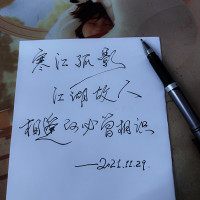 寒江孤影
江湖故人
相逢何必曾相识
——2021.11.29.